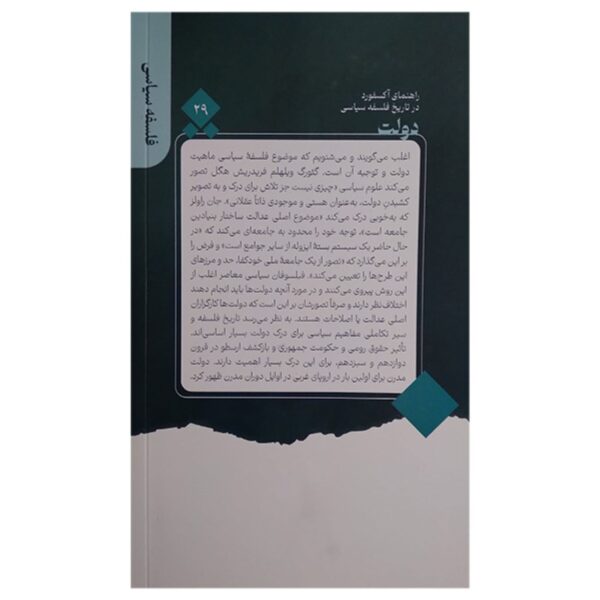 فلسفه سیاسی
راهنمای آکسفورد
در تاریخ فلسفه سیاسی
۲۹
دولت
اغلب می‌گویند و می‌شنویم که موضوع فلسفهٔ سیاسی ماهیت
دولت و توجیه آن است. گئورگ ویلهلم فریدریش هگل تصور
می‌کند علوم سیاسی «چیزی نیست جز تلاش برای درک و به تصویر
کشیدنِ دولت، به‌عنوان هستی و موجودی ذاتاً عقلانی». جان راولز
که به‌خوبی درک می‌کند «موضوع اصلی عدالت ساختار بنیادین
جامعه است»، توجه خود را محدود به جامعه‌ای می‌کند که «در
حال حاضر یک سیستم بستهٔ ایزوله از سایر جوامع است» و فرض را
بر این می‌گذارد که «تصور از یک جامعهٔ ملی خودکفا، حد و مرزهای
این طرح‌ها را تعیین می‌کند». فیلسوفان سیاسی معاصر اغلب از
این روش پیروی می‌کنند و در مورد آنچه دولت‌ها باید انجام دهند
اختلاف‌نظر دارند و صرفاً تصورشان بر این است که دولت‌ها کارگزاران
اصلی عدالت یا اصلاحات هستند. به نظر می‌رسد تاریخ فلسفه و
سیر تکاملی مفاهیم سیاسی برای درک دولت بسیار اساسی‌اند.
تأثیر حقوق رومی و حکومت جمهوری و بازکشف ارسطو در قرون
دوازدهم و سیزدهم، برای این درک بسیار اهمیت دارند. دولت
مدرن برای اولین بار در اروپای غربی در اوایل دوران مدرن ظهور کرد.